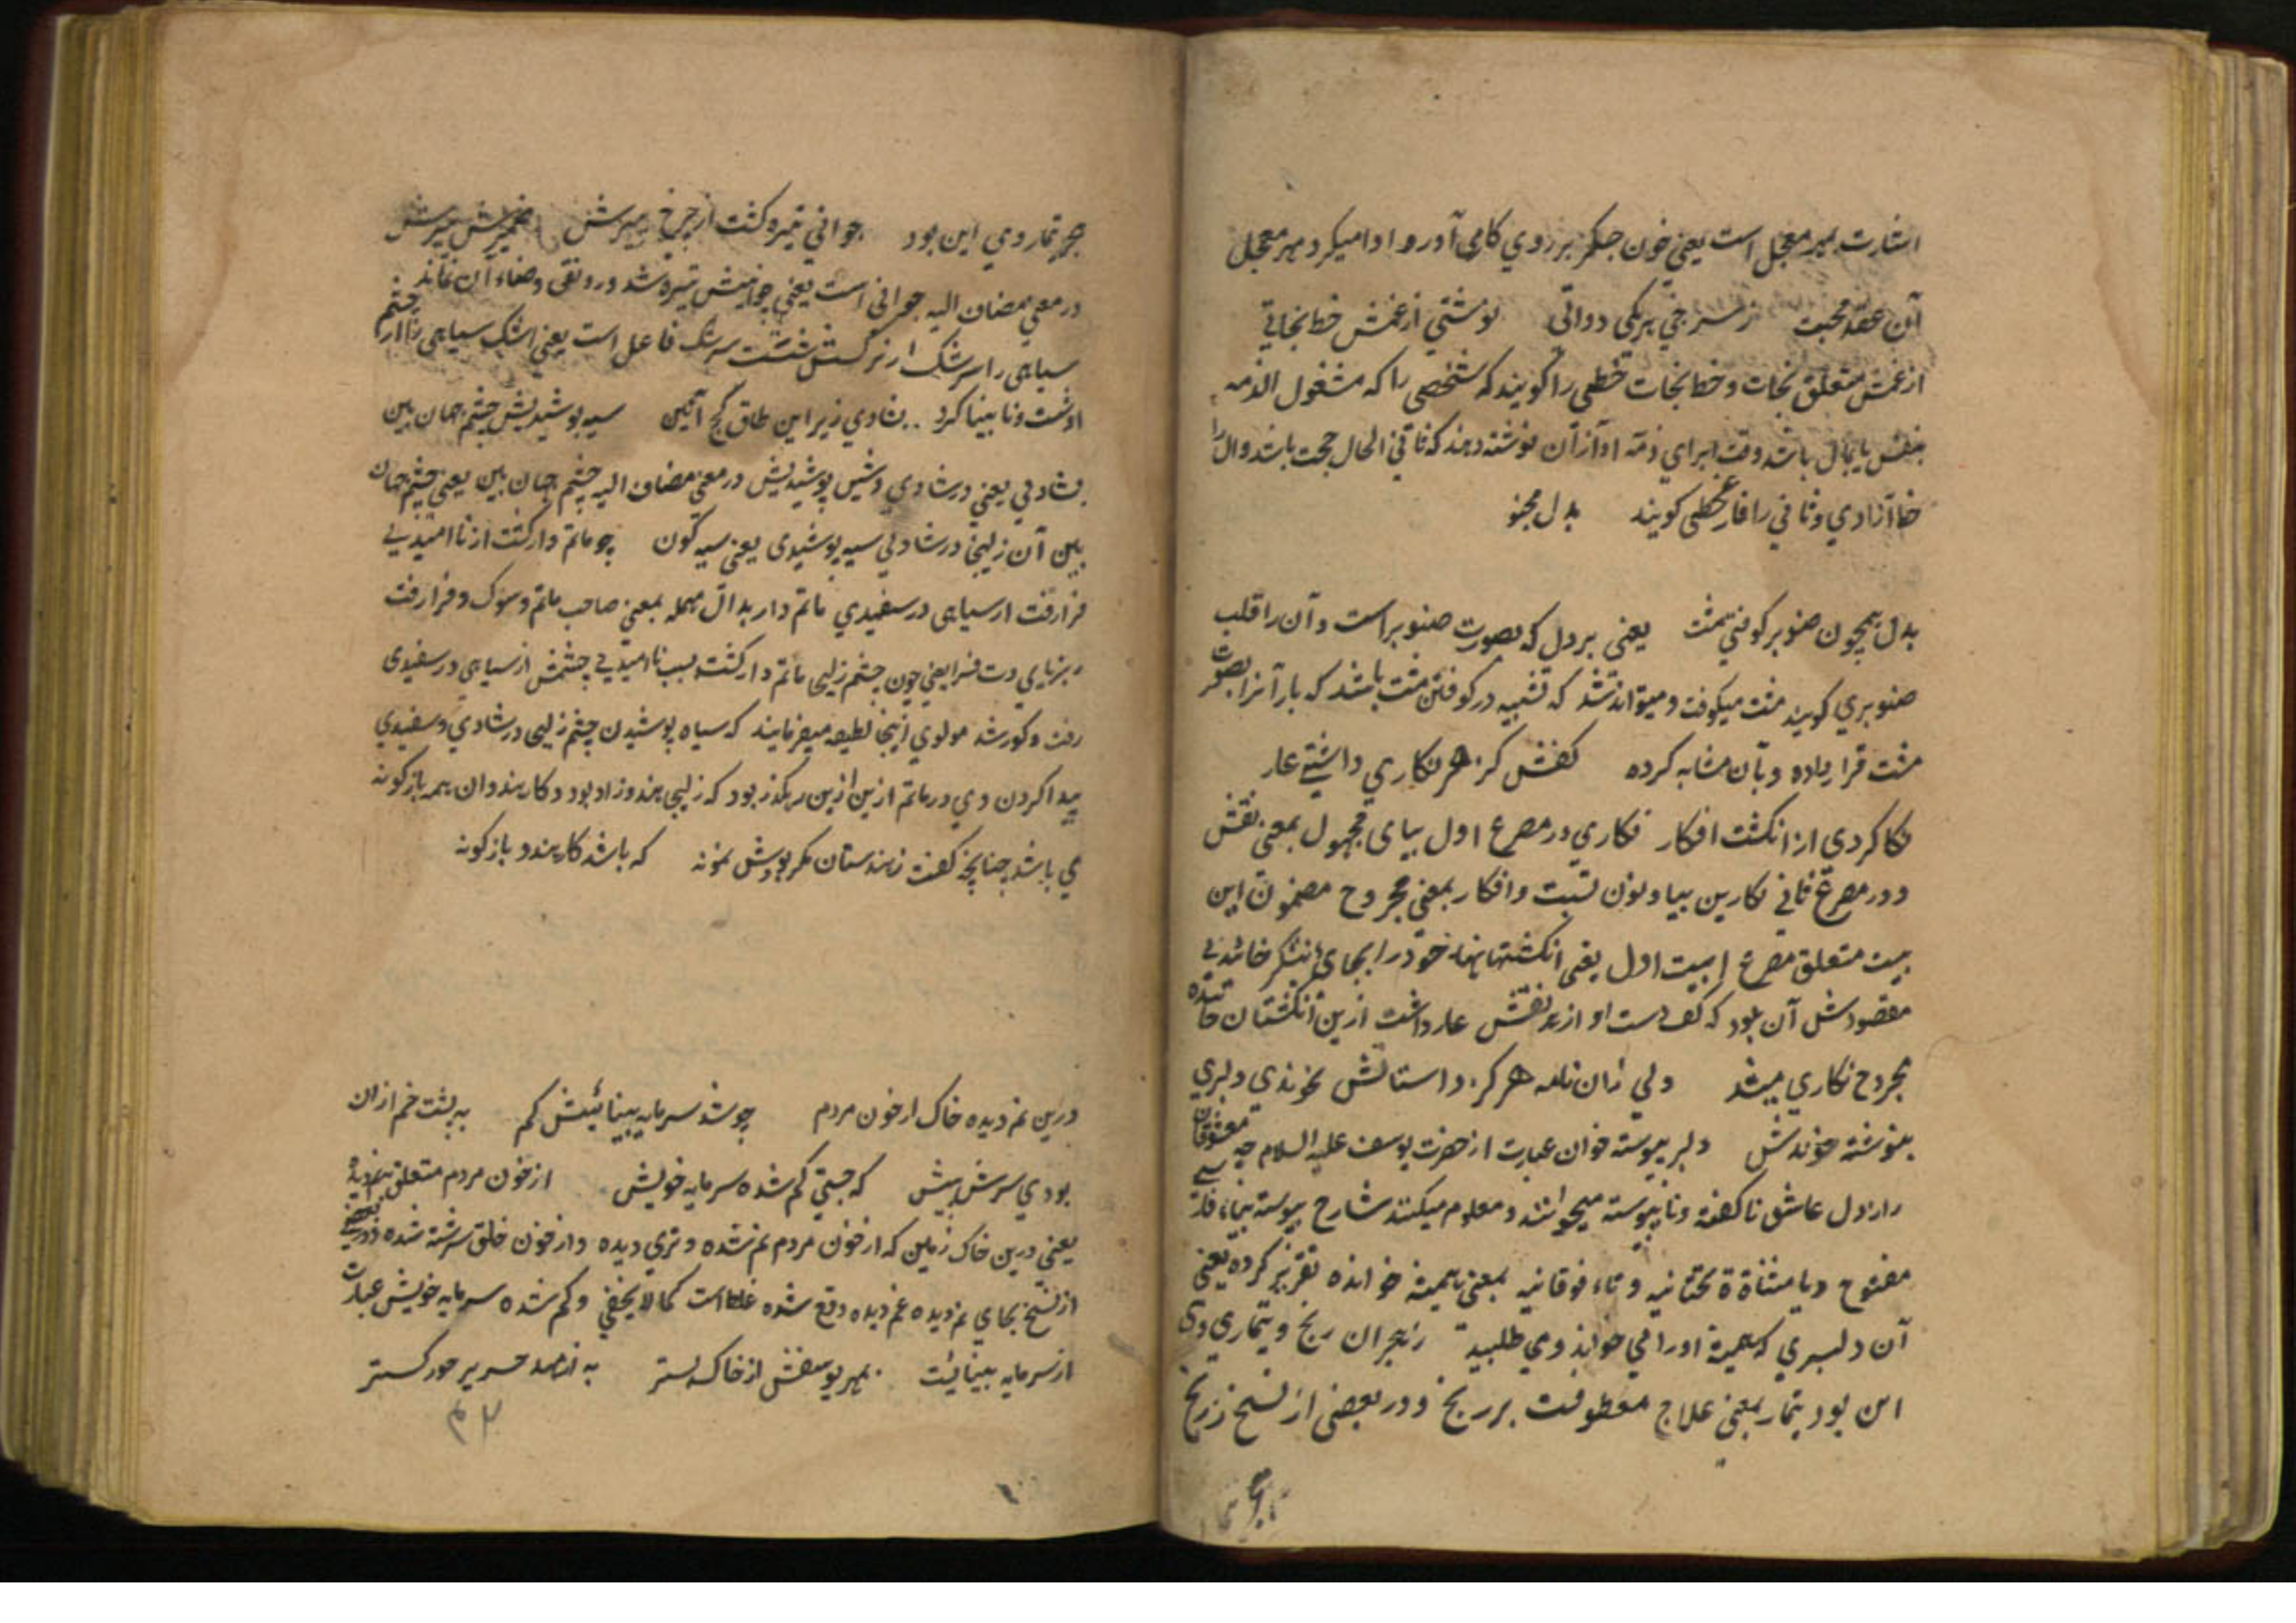 اشارت بمهر معجل است یعنی خون جگر بر روی کاهی آورد و ادا میکرد مهر معجل
آن عقد محبت ز سرخی بر یکی دواتی نوشتی از غمش خط نجاتی
از غمش متعلق نجات و خط نجات خطی را گویند که شخصی را که مشغول الذمه
بنفس یا بمال باشد وقت ابرای ذمه او از آن نوشته دهند که ثانی الحال حجت باشد و اول را
خط آزادی و ثانی را فارغخطی گویند بدل مجنو
بدل همچون صنوبر کوفتی مشت یعنی بر دل که بصورت صنوبر است و آن را قلب
صنوبری گویند مشت میکوفت و میتواند شد که تشبیه در کوفتن مشت باشد که بار آنرا بصورت
مشت قرار داده و بآن مشابه کرده کفش کز هر نگاری داشتی عار
نگا کردی از انگشت افکار نگاری در مصرع اول بیای مجهول بمعنی نقش
و در مصرع ثانی نگارین بیا و نون نسبت و افکار بمعنی مجروح مضمون این
بیت متعلق مصرع بیت اول یعنی انگشتهاء خود را بجای نیشکر خائیدنی
مقصودش آن بود که کف دست او از هر نقش عار داشت ازین انگشتان خائیده
مجروح نگاری میشد ولی زان نامه هرگز داستانش نخوندی دلبری
بنوشته خوندش دلبر پیوسته خوان عبارت از حضرت یوسف علیه السلام چه معشوقان
راز دل عاشق ناگفته و نا پیوسته میخوانند و معلوم میکنند شارح پیوسته بباء فارسی
مفتوح و یا مثناة تحتانیه و تاء فوقانیه بمعنی همیشه خوانده تقریر کرده یعنی
آن دلبری که همیشه او را می خواند و می طلبید ز هجران رنج و تیماری وی
این بود تیمار بمعنی علاج معطوفست بر رنج و در بعضی از نسخ ز رنج
جز تیمار وی این بود جوانی تیره گشت از چرخ پیرش ضمیر شین پیرش
در معنی مضاف الیه جوانی است یعنی جوانیش تیره شد و رونقی و صفاء آن نماند
سیاهی را سرشک از نرگسش شست سرشک فاعل است یعنی اشک سیاهی را از چشم
او شست و نابینا کرد بشادی زیر این طاق کج آئین سیه پوشیدیش چشم جهان بین
بشادی یعنی در شادی و شین پوشیدیش در معنی مضاف الیه چشم جهان بین یعنی چشم جهان
بین آن زلیخا در شادی سیه پوشیدی یعنی سیه گون چو ماتم دار گشت از ناامیدی
فرا رفت از سیاهی در سفیدی ماتم دار بدال مهمله بمعنی صاحب ماتم و سوک و فرا رفت
یعنی چون چشم زلیخا ماتم دار گشت بسبب ناامیدی چشمش از سیاهی در سفیدی
رفت و کور شد مولوی اینجا لطیفه میفرمایند که سیاه پوشیدن چشم زلیخا در شادی و سفیدی
پیدا کردن وی در ماتم ازین رهگذر بود که زلیخا هندوزاد بود و کار هندوان همه باژگونه
می باشد چنانچه گفت ز هندستان مگر بودش نمونه که باشد کار هندو باژگونه
درین نم دیده خاک از خون مردم چو شد سرمایه بینائیش گم به پشت خم از آن
بودی سرش پیش که جستی گم شده سرمایه خویش از خون مردم متعلق بنم دیده
یعنی درین خاک زمین که از خون مردم نم شده و تری دیده و از خون خلق سرشته شده و در بعضی
از نسخ بجای نم دیده غم دیده واقع شده غلط است کما لا یخفی و گم شده سرمایه خویش عبارت
از سرمایه بینائیست بمهر یوسفش از خاک بستر به از صد حریر حور گستر